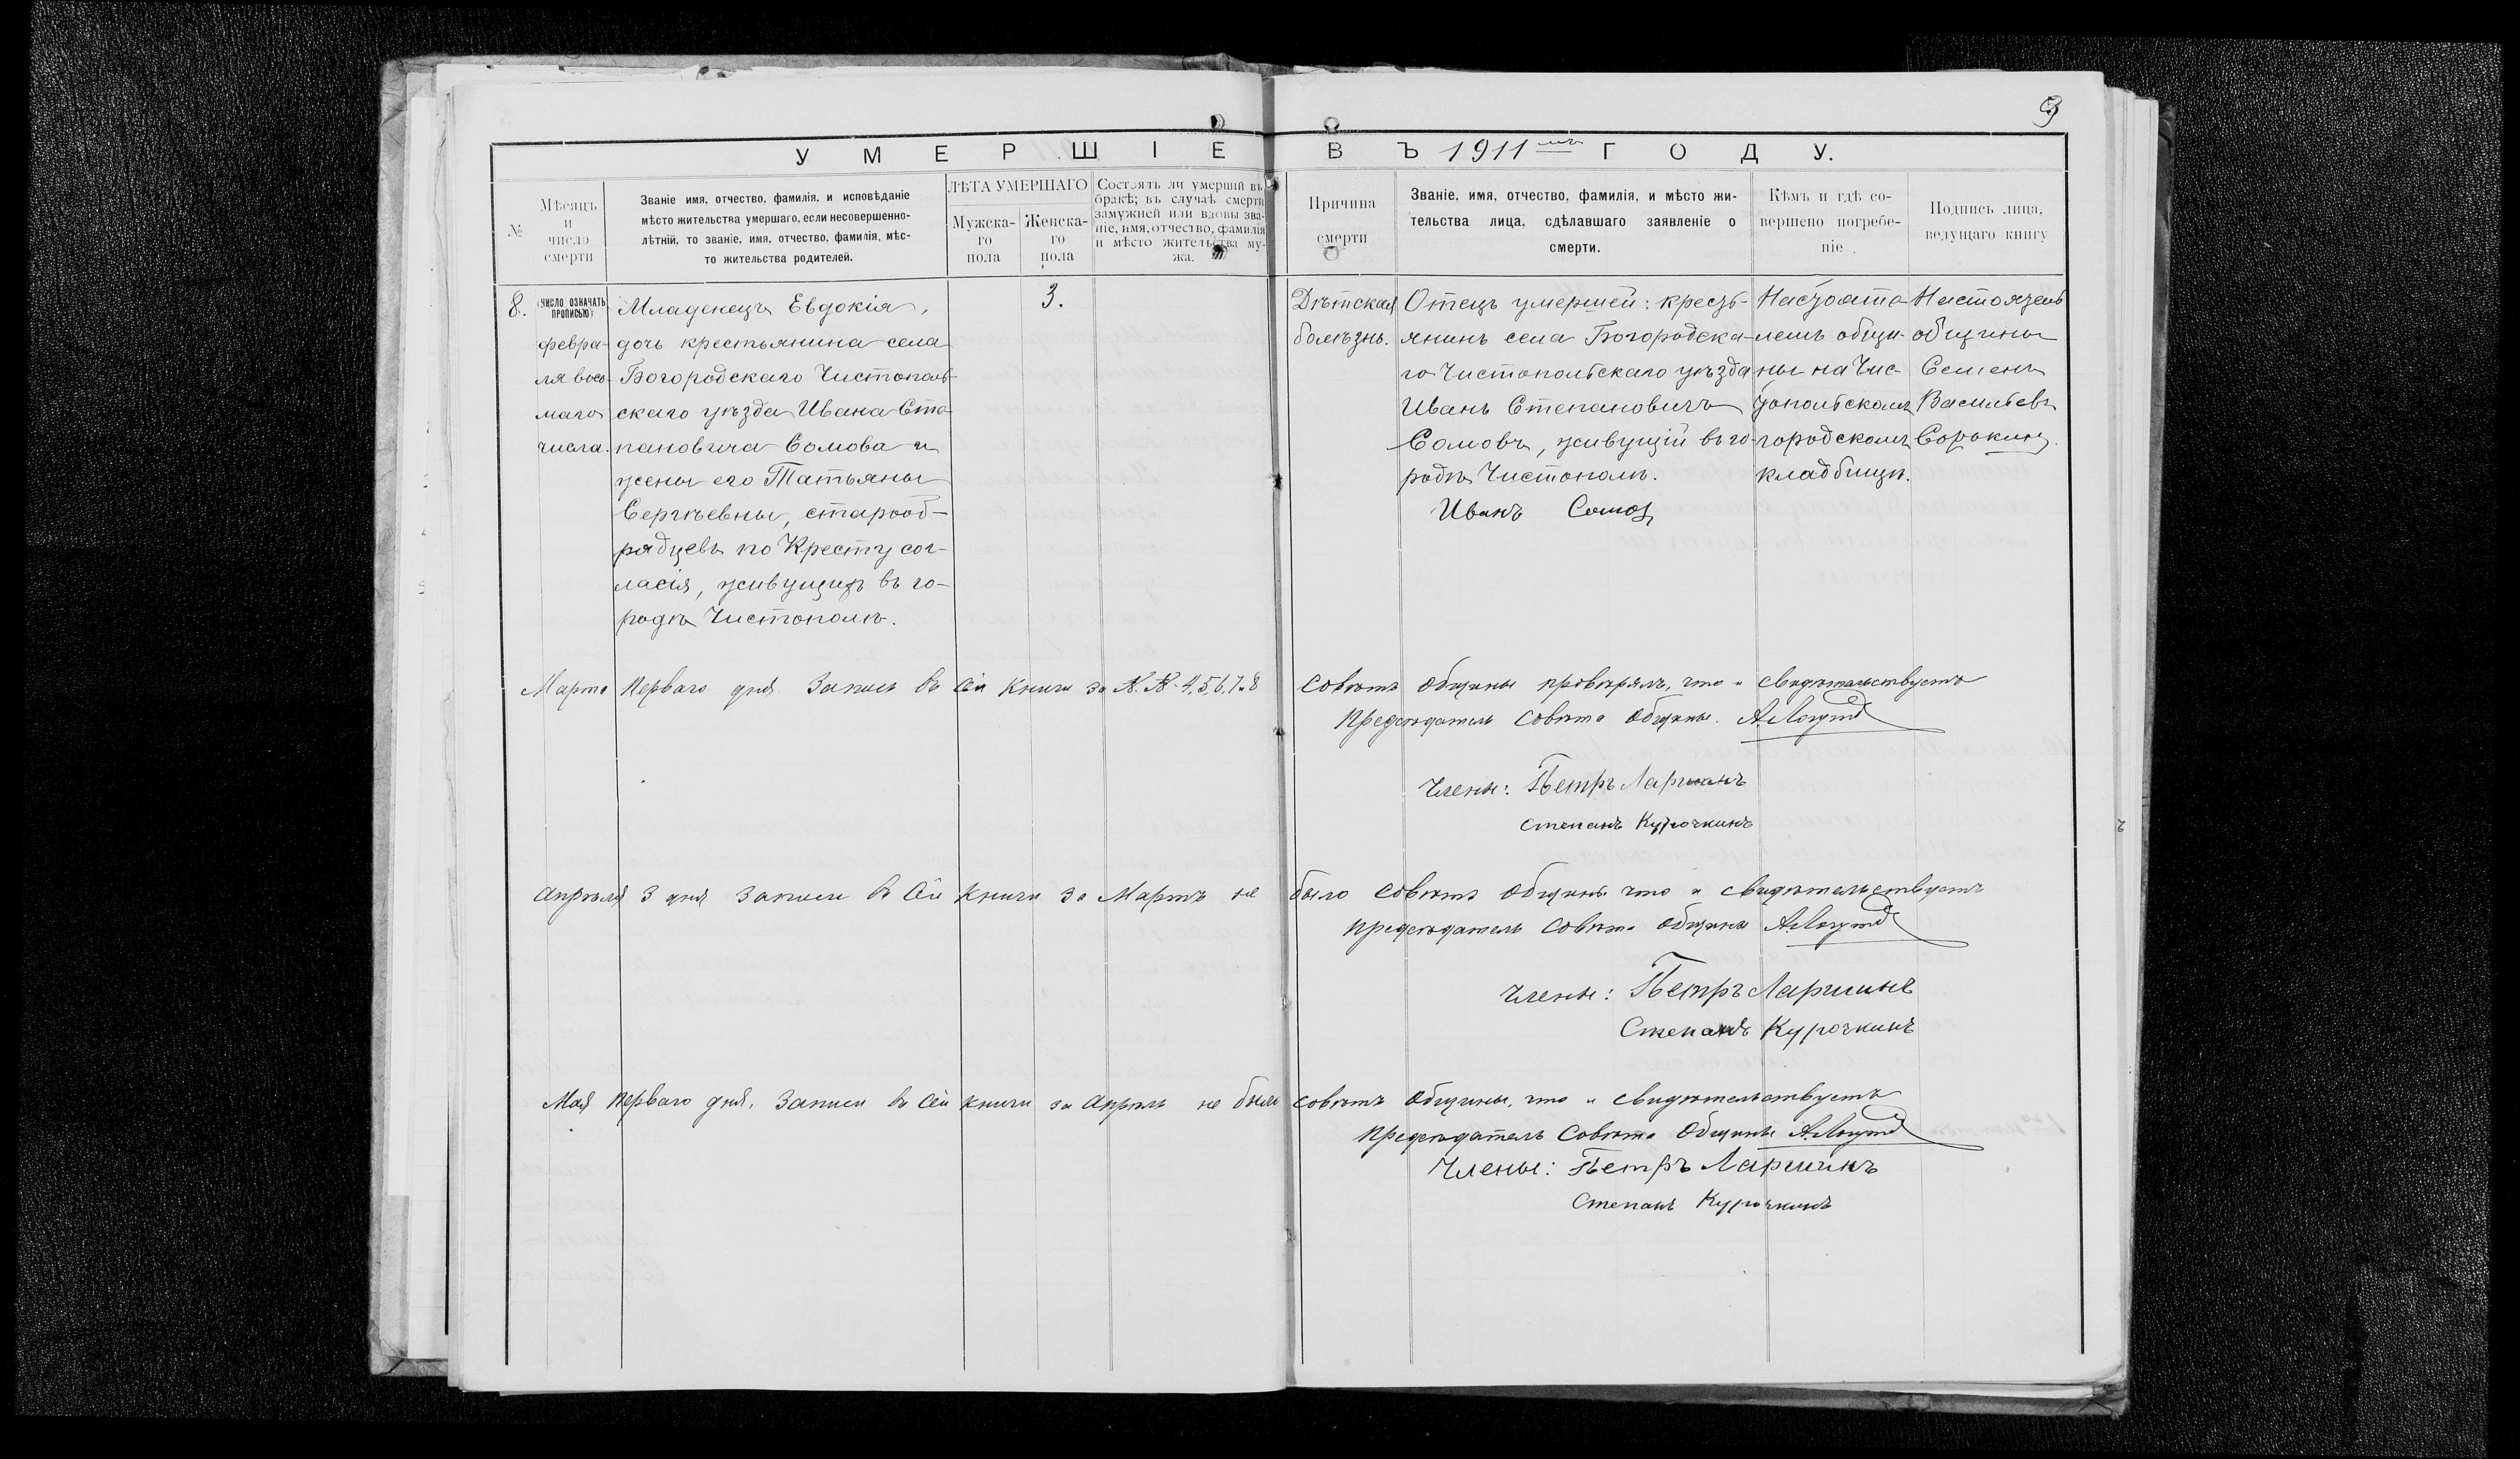 3
УМЕРШІЕ ВЪ 1911мъ ГОДУ.
№
Мѣсяцъ
и
число
смерти
Званіе имя, отчество, фамилія, и исповѣданіе
мѣсто жительства умершаго, если несовершенно-
лѣтній, то званіе, имя, отчество, фамилія, мѣс-
то жительства родителей.
ЛѢТА УМЕРШАГО
Мужска-
го
пола
Женска-
го
пола
Состоялъ ли умершій въ
бракѣ; въ случаѣ смерти
замужней или вдовы зва-
ніе, имя, отчество, фамилія
и мѣсто жительства му-
жа.
Причина
смерти
Званіе, имя, отчество, фамилія, и мѣсто жи-
тельства лица, сдѣлавшаго заявленіе о
смерти.
Кѣмъ и гдѣ со-
вершено погребе-
ніе.
Подпись лица,
ведущаго книгу
8.
(ЧИСЛО ОЗНАЧАТЬ
ПРОПИСЬЮ)
февра-
ля вось-
маго
числа.
Младенецъ Евдокія,
дочь крестьянина села
Богородскаго Чистополь-
скаго уѣзда Ивана Сте-
пановича Сомова и
жены его Татьяны
Сергѣевны, старооб-
рядцевъ по Кресту сог-
ласія, живущихъ въ го-
родѣ Чистополѣ.
3.
Дѣтская
болѣзнь.
Отецъ умершей: кресть-
янинъ села Богородска-
го Чистопольскаго уѣзда
Иванъ Степановичъ
Сомовъ, живущій въ го-
родѣ Чистополѣ.
Иванъ Сомов
Настояте-
лемъ общи-
ны на Чис-
топольскомъ
городскомъ
кладбищѣ.
Настоятель
общины
Семенъ
Васильевъ
Сорокинъ.
Марта перваго дня Записи въ сей книги за №.№ 4,5,6,7 и 8 Совѣтъ Общины провѣрялъ, что и свидѣтельствуетъ
Предсѣдатель Совѣта Общины.
Члены: Петръ Ларинъ
Степанъ Курочкинъ
Апрѣля 3 дня Записи въ сей книги за Мартъ не было Совѣтъ Общины что и свидѣтельствуетъ
Предсѣдатель Совѣта Общины
Члены: Петръ
Степанъ Курочкинъ
Мая перваго дня, Записи въ сей книги за Апрѣль не было Совѣтъ Общины, что и свидѣтельствуетъ
Предсѣдатель Совѣта Общины
Члены: Петръ
Степанъ Курочкинъ